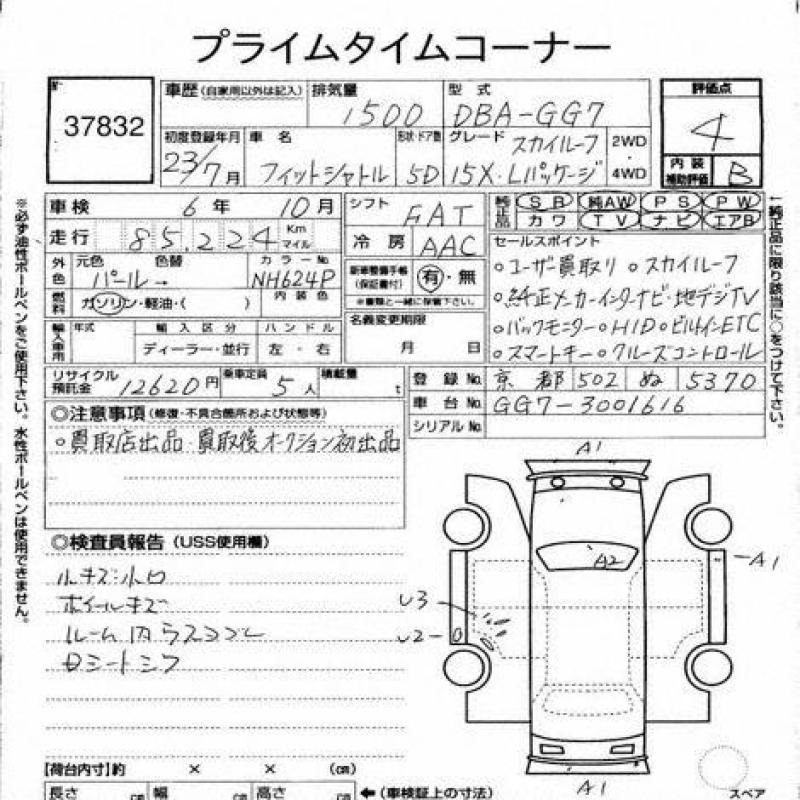 プライムタイムコーナー
37832
車歴 (自家用以外は記入)
排気量 1500
型式 DBA-GG7
評価点 4
初度登録年月 23/7月
車名 フィットシャトル
形状・ドア数 5D
グレード スカイルーフ 15X・Lパッケージ
2WD
4WD
内装補助評価 B
車検 6年 10月
シフト FAT
純正品 SB 純AW PS PW
カワ TV ナビ エアB
走行 85,224 Km マイル
冷房 AAC
セールスポイント
外色 元色 パール→ 色替 カラーNo. NH624P
新車整備手帳(保証書付) 有・無
※書類と一緒に保管下さい。
○ユーザー買取り ○スカイルーフ
燃料 ガソリン・軽油・( ) 内装色
○純正メーカーインターナビ・地デジTV
輸入車用 年式 輸入区分 ハンドル
名義変更期限
○バックモニター ○HID ○ビルトインETC
ディーラー・並行 左・右
月 日
○スマートキー ○クルーズコントロール
リサイクル預託金 12620円 乗車定員 5人 積載量 t
登録No. 京都 502 ぬ 5370
車台No. GG7-3001616
シリアルNo.
◎注意事項 (修復・不具合箇所および状態等)
○買取店出品 買取後オークション初出品
◎検査員報告 (USS使用欄)
ルキズ小口
ホイールキズ
ルーム内
シートシワ
A1
A2
A1
U3
U2
A1
【荷台内寸】約 × × (㎝)
長さ ㎝ 幅 ㎝ 高さ ㎝ ←(車検証上の寸法)
スペア
※必ず油性ボールペンをご使用下さい。水性ボールペンは使用できません。
←純正品に限り該当に○をつけて下さい。